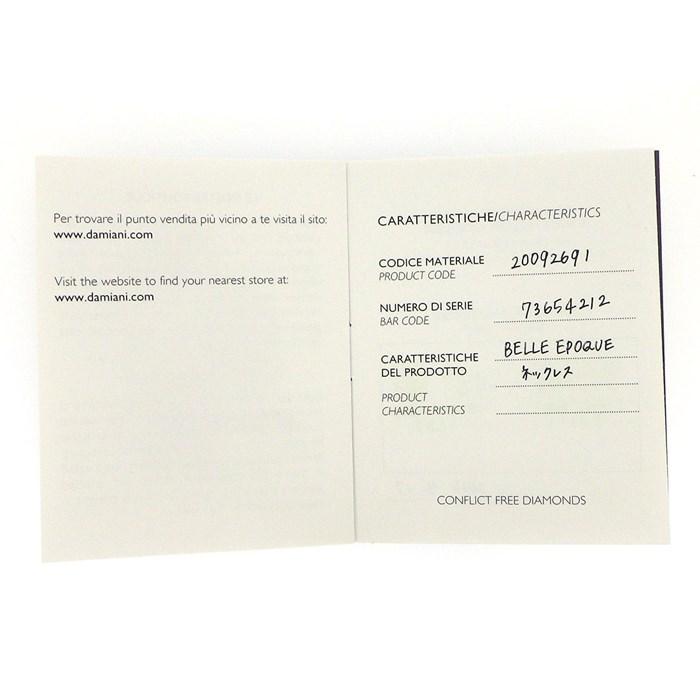 Per trovare il punto vendita più vicino a te visita il sito:
www.damiani.com
Visit the website to find your nearest store at:
www.damiani.com
CARATTERISTICHE/CHARACTERISTICS
CODICE MATERIALE 20092691
PRODUCT CODE
NUMERO DI SERIE 73654212
BAR CODE
CARATTERISTICHE BELLE EPOQUE
DEL PRODOTTO ネックレス
PRODUCT
CHARACTERISTICS
CONFLICT FREE DIAMONDS